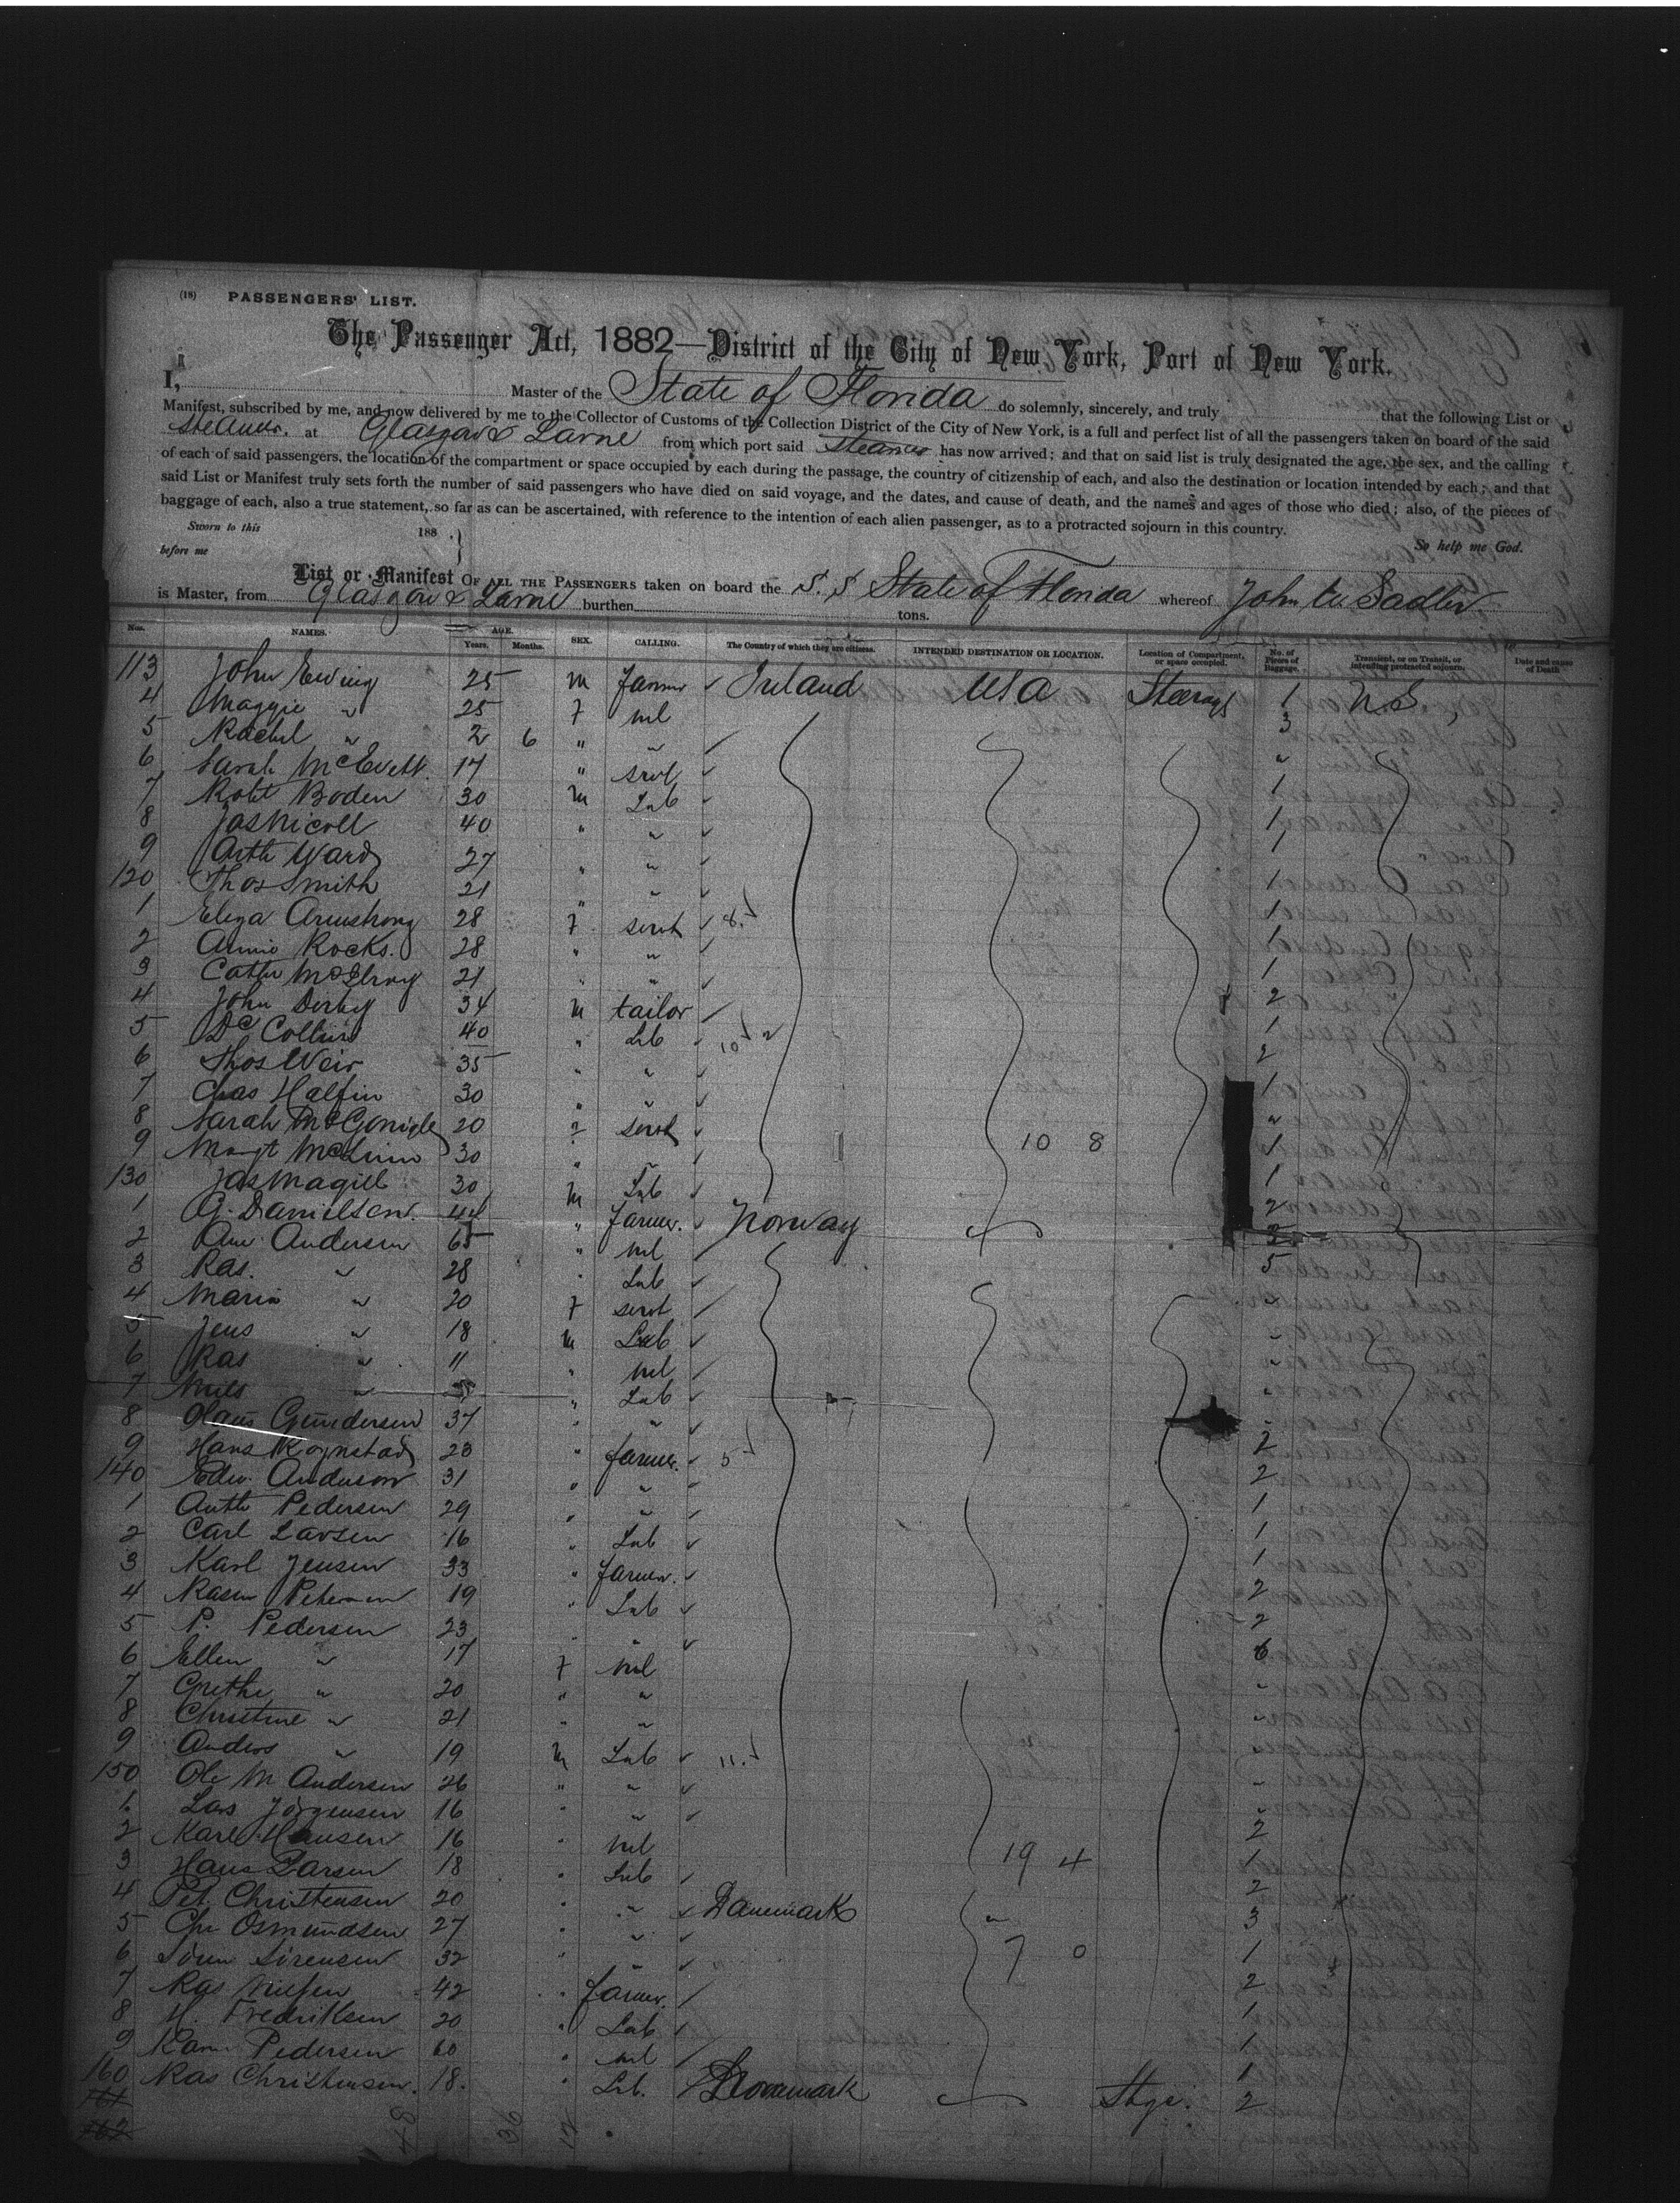 (18) PASSENGERS' LIST.
The Passenger Act, 1882—District of the City of New York, Port of New York.
I, Master of the State of Florida do solemnly, sincerely, and truly that the following List or
Manifest, subscribed by me, and now delivered by me to the Collector of Customs of the Collection District of the City of New York, is a full and perfect list of all the passengers taken on board of the said
steamer. at Glasgow & Larne from which port said steamer has now arrived; and that on said list is truly designated the age, the sex, and the calling
of each of said passengers, the location of the compartment or space occupied by each during the passage, the country of citizenship of each, and also the destination or location intended by each; and that
said List or Manifest truly sets forth the number of said passengers who have died on said voyage, and the dates, and cause of death, and the names and ages of those who died; also, of the pieces of
baggage of each, also a true statement, so far as can be ascertained, with reference to the intention of each alien passenger, as to a protracted sojourn in this country.
Sworn to this 188 So help me God.
before me
List or Manifest OF ALL THE PASSENGERS taken on board the S.S State of Florida whereof John W. Sadler
is Master, from Glasgow & Larne burthen tons.
Nos. NAMES. AGE. Years. Months. SEX. CALLING. The Country of which they are citizens. INTENDED DESTINATION OR LOCATION. Location of Compartment, or space occupied. No. of Pieces of Baggage. Transient, or on Transit, or intending protracted sojourn. Date and cause of Death
113 John Ewing 25 m Farmer Ireland USA Steerage 1
4 Maggie " 25 f nil 3
5 Rachel " 2 6 " " "
6 Sarah McEvett 17 " servt 1
7 Robt Boden 30 m Lab 1
8 Jas Nicoll 40 " " 1
9 Arth Ward 27 " "
120 Thos Smith 21 " " 1
1 Eliza Armstrong 28 f servt 8 1
2 Annie Rocks. 28 " " 1
3 Cath McElroy 21 " " 1
4 John Derby 34 m tailor 2
5 Collins 40 " Lab 10 2 1
6 Thos Weir 35 " " 2
7 Chas Halfin 30 " " 1
8 Sarah McGonigle 20 f servt "
9 Margt 30 " " 10 8 1
130 Jas Magill 30 m Lab 1
1 G. Danielsen. 44 " farmer. Norway 2
2 Andersen 65 " nil
3 Ras. " 28 " Lab 5
4 Maria " 20 f servt "
5 Jens " 18 m Lab "
6 Ras " 11 " nil "
7 Nils " " Lab "
8 Gundersen 37 " " "
9 Hans 23 " farmer. 5 2
140 Edw. Anderson 31 " " 2
1 Anth Pedersen 29 " " 1
2 Carl Larsen 16 " Lab 1
3 Karl Jensen 33 " farmer. 1
4 19 " Lab 2
5 P. Pedersen 23 " " 2
6 Ellen " 17 f nil 6
7 Grethe " 20 " " "
8 Christine " 21 " " "
9 Anders " 19 m Lab 11 "
150 Ole M Andersen 26 " " "
1 Lars Jörgensen 16 " " "
2 Karl Hansen 16 " nil 2
3 Hans Larsen 18 " Lab 19 4 1
4 Pet Christensen 20 " " Danemark 2
5 Chr Osmundsen 27 " " 3
6 Sören Sörensen 32 " " 7 0 1
7 Ras Nielsen 42 " farmer. 2
8 H. Fredriksen 20 " Lab 1
9 Karn Pedersen 60 " nil 1
160 Ras Christensen. 18. " Lab. Danemark Stge. 1
161 2
162 48 36 12